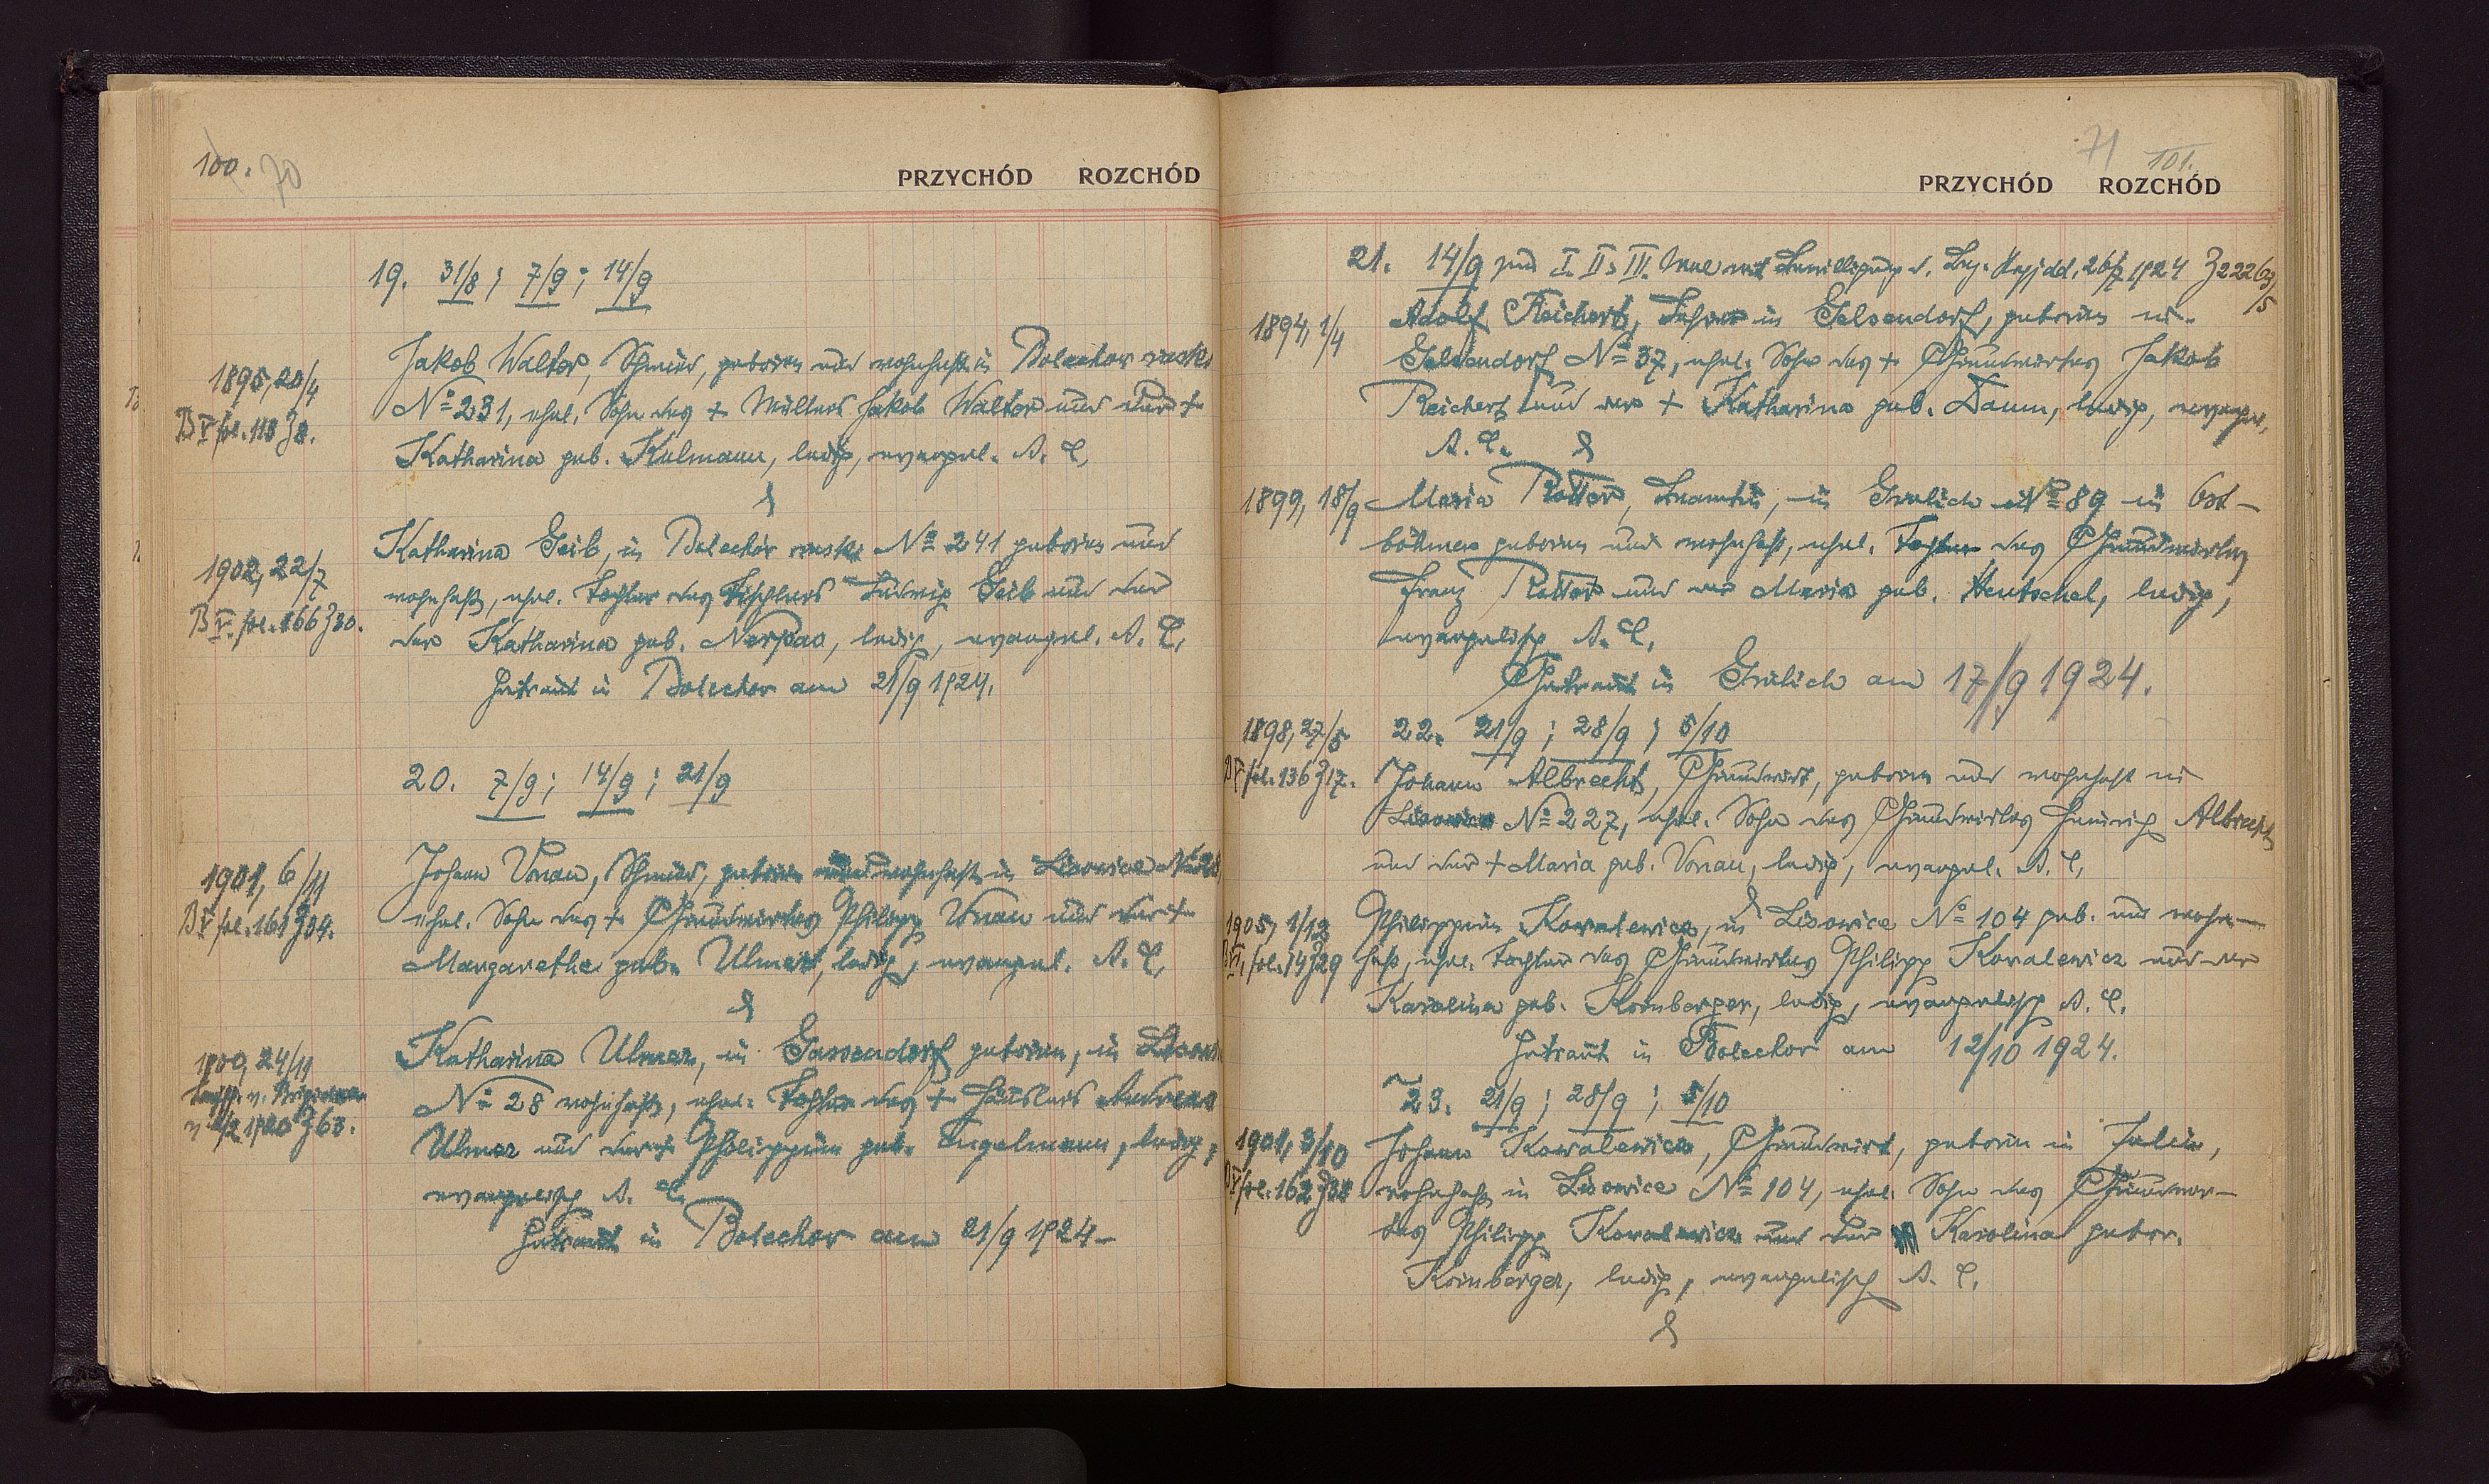 100. 70
PRZYCHÓD ROZCHÓD
19. 31/8 ; 7/9 ; 14/9
1895, 20/4
B V fol. 118 Z 8.
Jakob Walter, Schmied, geboren und wohnhaft in Bolechow ruski
No 231, ehel. Sohn des + Müllers Jakob Walter und der +
Katharina geb. Kulmann, ledig, evangel. A. C.
&
1902, 22/7
B V. fol. 166 Z 30.
Katharina Geib, in Bolechów ruski No 241 geboren und
wohnhaft, ehel. Tochter des Tischlers Ludwig Geib und der
der Katharina geb. Nerpas, ledig, evangel. A. C.
Getraut in Bolechow am 21/9 1924.
20. 7/9 ; 14/9 ; 21/9
1901, 6/11
B V fol. 161 Z 34.
Johann Vonau, Schmied, geboren und wohnhaft in Lisowice No 28
ehel. Sohn des + Grundwirtes Philipp Vonau und der +
Margarethe geb. Ulmer, ledig, evangel. A. C.
&
1900, 24/11
Z 63.
Katharina Ulmer, in Gassendorf geboren, in
No 28 wohnhaft, ehel. Tochter des + Häuslers Andreas
Ulmer und der Philippine geb. Engelmann, ledig,
evangelisch A. C.
Getraut in Bolechow am 21/9 1924
71 101.
PRZYCHÓD ROZCHÓD
21. 14/9 zum I. II. III. Male mit Bewilligung d. 26/7 1924
1894, 1/4
Adolf Reichert, Lehrer in Gelsendorf, geboren in
Gelsendorf No 37, ehel. Sohn des + Grundwirtes Jakob
Reichert und der + Katharina geb. Daum, ledig, evangel.
A. C. &
1899, 18/9
Maria Rotter, Beamtin, in Grulich No 89 in Ost-
böhmen geboren und wohnhaft, ehel. Tochter des Grundwirtes
Franz Rotter und der Maria geb. Hentschel, ledig,
evangelisch A. C.
Getraut in Grulich am 17/9 1924.
1898, 27/5
fol. 136 Z 17.
22. 21/9 ; 28/9 ; 5/10
Johann Albrecht, Grundwirt, geboren und wohnhaft in
Lisowice No 227, ehel. Sohn des Grundwirtes Heinrich Albrecht
und der + Maria geb. Vonau, ledig, evangel. A. C.
&
1905, 1/12
B VI. fol. 14 Z 29
Philippine Kowalewicz, in Lisowice No 104 geb. und wohn-
haft, ehel. Tochter des Grundwirtes Philipp Kowalewicz und der
Karolina geb. Kornberger, ledig, evangelisch A. C.
Getraut in Bolechow am 12/10 1924.
23. 21/9 ; 28/9 ; 5/10
1901, 3/10
B V fol. 162 Z 38
Johann Kowalewicz, Grundwirt, geboren in Jalin,
wohnhaft in Lisowice No 104, ehel. Sohn des Grundwir-
tes Philipp Kowalewicz und der Karolina gebor.
Kornberger, ledig, evangelisch A. C.
&